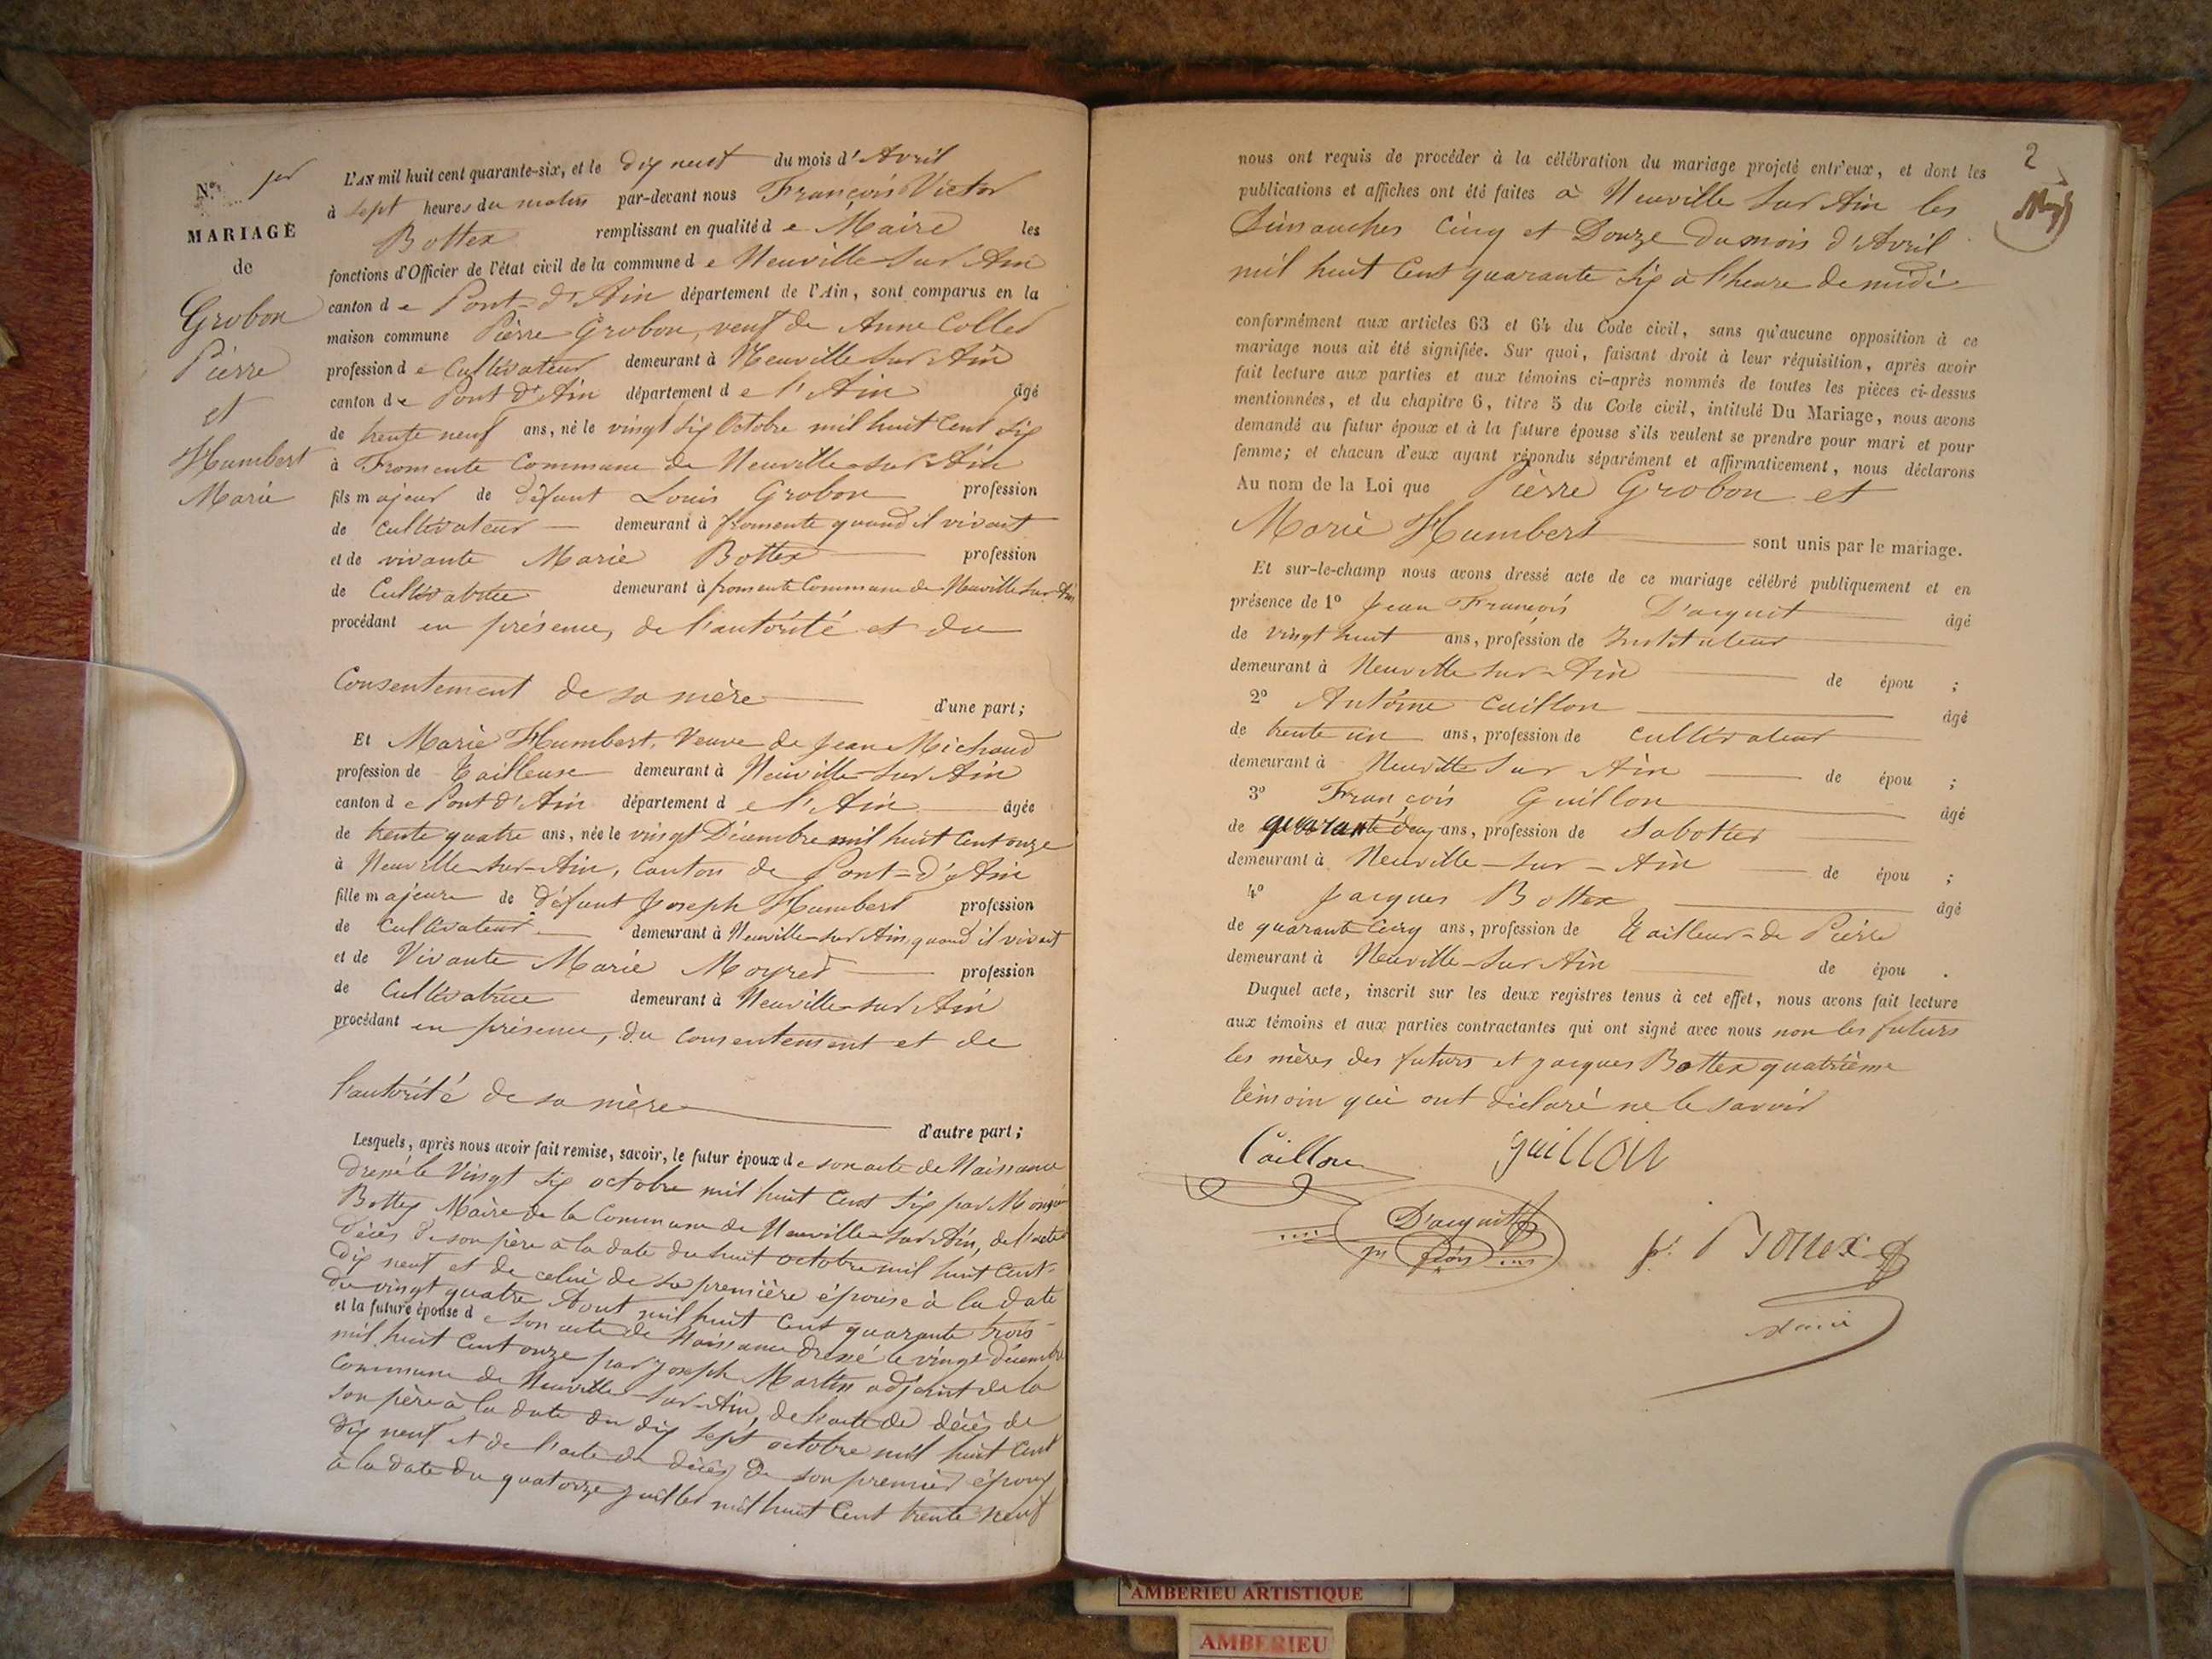 N.° 1er
MARIAGE
de
Grobon
Pierre
et
Humbert
Marie
L'AN mil huit cent quarante-six, et le dix neuf du mois d'Avril
à sept heures du matin par-devant nous François Victor
Bottex remplissant en qualité de Maire les
fonctions d'Officier de l'état civil de la commune de Neuville sur Ain
canton de Pont-d'Ain département de l'Ain, sont comparus en la
maison commune Pierre Grobon, veuf de Anne Collet
profession de Cultivateur demeurant à Neuville sur Ain
canton de Pont d'Ain département de l'Ain âgé
de trente neuf ans, né le vingt six Octobre mil huit Cent six
à Fromente Commune de Neuville sur Ain
fils majeur de défunt Louis Grobon profession
de cultivateur demeurant à fromente quand il vivait
et de vivante Marie Bottex profession
de Cultivatrice demeurant à fromente Commune de Neuville sur Ain
procédant en présence, de l'autorité et du
Consentement de sa mère d'une part;
Et Marie Humbert, Veuve de Jean Michaud
profession de Tailleuse demeurant à Neuville sur Ain
canton de Pont d'Ain département de l'Ain âgée
de trente quatre ans, née le vingt Décembre mil huit Cent onze
à Neuville-sur-Ain, Canton de Pont-d'Ain
fille majeure de défunt Joseph Humbert profession
de Cultivateur demeurant à Neuville-sur Ain, quand il vivait
et de Vivante Marie Moyret profession
de Cultivatrice demeurant à Neuville-sur Ain
procédant en présence, du consentement et de
l'autorité de sa mère d'autre part;
Lesquels, après nous avoir fait remise, savoir, le futur époux de son acte de Naissance
dressé le Vingt six octobre mil huit Cent six par
Bottex Maire de la Commune de Neuville-sur Ain, de l'acte
décès de son père à la date du huit octobre mil huit Cent-
dix neuf et de celui de sa première épouse à la date
du vingt quatre Aout mil huit Cent quarante trois
et la future épouse de son acte de Naissance dressé le vingt décembre
mil huit Cent onze par Joseph Martin adjoint de la
Commune de Neuville-sur-Ain, de l'acte de décès de
son père à la date du dix sept octobre mil huit Cent
dix neuf et de l'acte de décès de son premier époux
à la date du quatorze juillet mil huit Cent trente neuf
2
nous ont requis de procéder à la célébration du mariage projeté entr'eux, et dont les
publications et affiches ont été faites à Neuville sur Ain les
Dimanches Cinq et Douze du mois d'Avril
mil huit Cent quarante six à l'heure de midi
conformément aux articles 63 et 64 du Code civil, sans qu'aucune opposition à ce
mariage nous ait été signifiée. Sur quoi, faisant droit à leur réquisition, après avoir
fait lecture aux parties et aux témoins ci-après nommés de toutes les pièces ci-dessus
mentionnées, et du chapitre 6, titre 5 du Code civil, intitulé Du Mariage, nous avons
demandé au futur époux et à la future épouse s'ils veulent se prendre pour mari et pour
femme; et chacun d'eux ayant répondu séparément et affirmativement, nous déclarons
Au nom de la Loi que Pierre Grobon et
Marie Humbert sont unis par le mariage.
Et sur-le-champ nous avons dressé acte de ce mariage célébré publiquement et en
présence de 1° Jean François D'acquit âgé
de vingt huit ans, profession de Instituteur
demeurant à Neuville sur-Ain de épou ;
2° Antoine Caillon âgé
de trente un ans, profession de cultivateur
demeurant à Neuville sur Ain de épou ;
3° François Guillon âgé
de quarante deux ans, profession de Sabotier
demeurant à Neuville-sur-Ain de épou ;
4° Jacques Bottex âgé
de quarante Cinq ans, profession de Tailleur-de Pierre
demeurant à Neuville-sur Ain de épou .
Duquel acte, inscrit sur les deux registres tenus à cet effet, nous avons fait lecture
aux témoins et aux parties contractantes qui ont signé avec nous non les futurs
les mères des futurs et Jacques Bottex quatrième
témoin qui ont déclaré ne le savoir
Caillon guillon
D'acquit
Bottex
AMBERIEU ARTISTIQUE
AMBERIEU